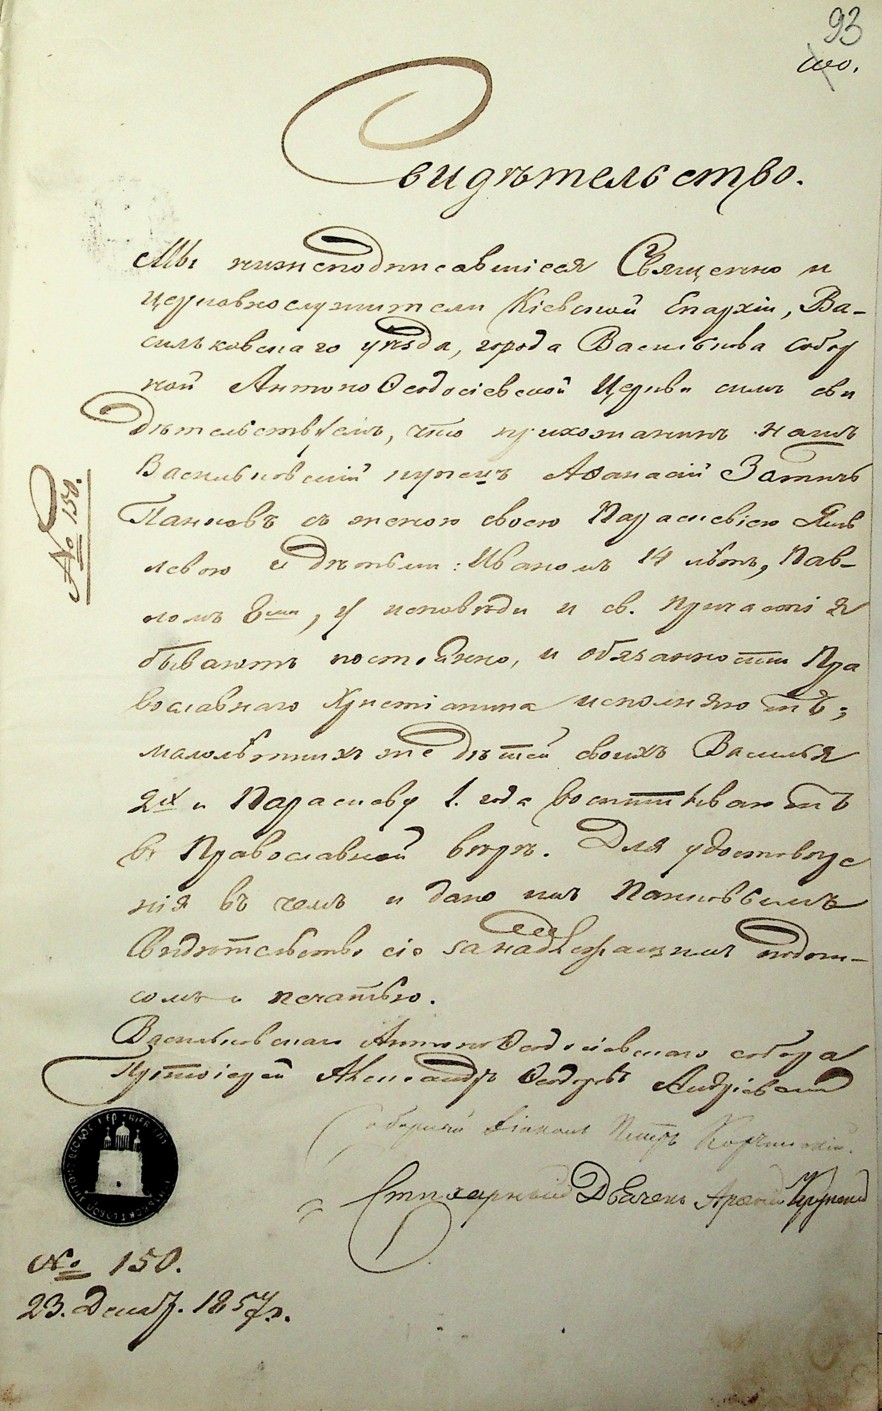 93
Свидѣтельство.
Мы нижеподписавшіеся Священно и
церковнослужители Кіевской Епархіи, Ва-
сильковскаго уѣзда, города Василькова собор
ной Антоно Ѳеодосіевской Церкви симъ сви
дѣтельствуемъ, что прихожанинъ нашъ
Васильковскій купецъ Аѳанасій
Пановъ съ женою своею Параскевіею
левою и дѣтьми: Иваномъ 14 лѣтъ, Пав-
ломъ 8ми, у исповѣди и св. Причастія
бываютъ постоянно, и обязанности Пра
вославнаго Христіанина исполняютъ;
малолѣтнихъ же дѣтей своихъ Василья
2хъ и Параскеву 1. года воспитываютъ
въ Православной вѣрѣ. Для удостовѣре
нія въ чемъ и дано имъ Пановымъ
Свидѣтельство сіе за надлежащимъ подпи-
сомъ и печатью.
Васильковскаго Антоно Ѳеодосіевскаго собора
Протоіерей Александръ Ѳеодоровъ
Соборный Діаконъ Петръ
Стихарный Дьячекъ
№ 150.
№ 150.
23. Декабр. 1857 г.